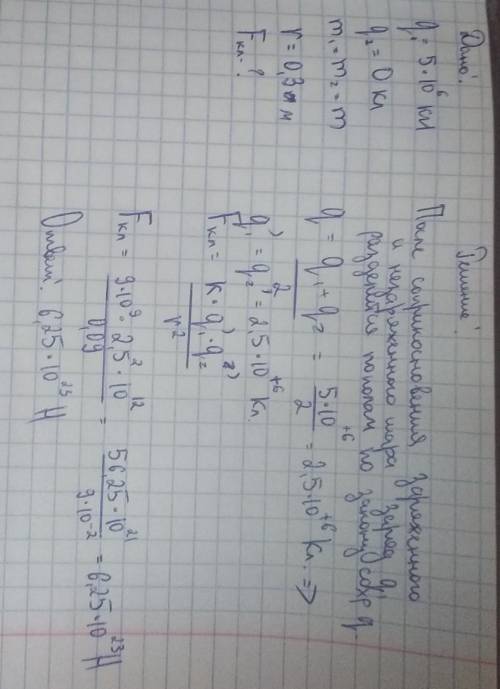 Дано:
q₁ = 5·10⁶ Кл
q₂ = 0 Кл
m₁ = m₂ = m
r = 0,3 м
Fкл - ?
Решение:
После соприкосновения заряженного
и незаряженного шара заряд q₁
разделится пополам по закону сохр q
q = (q₁ + q₂)/2 = 5·10⁺⁶/2 = 2,5·10⁺⁶ Кл. ⇒
q₁' = q₂' = 2,5·10⁺⁶ Кл.
Fкл = k·q₁'·q₂'/r²
Fкл = 9·10⁹·2,5²·10¹²/0,09 = 56,25·10²¹/9·10⁻² = 6,25·10²³ Н
Ответ: 6,25·10²³ Н